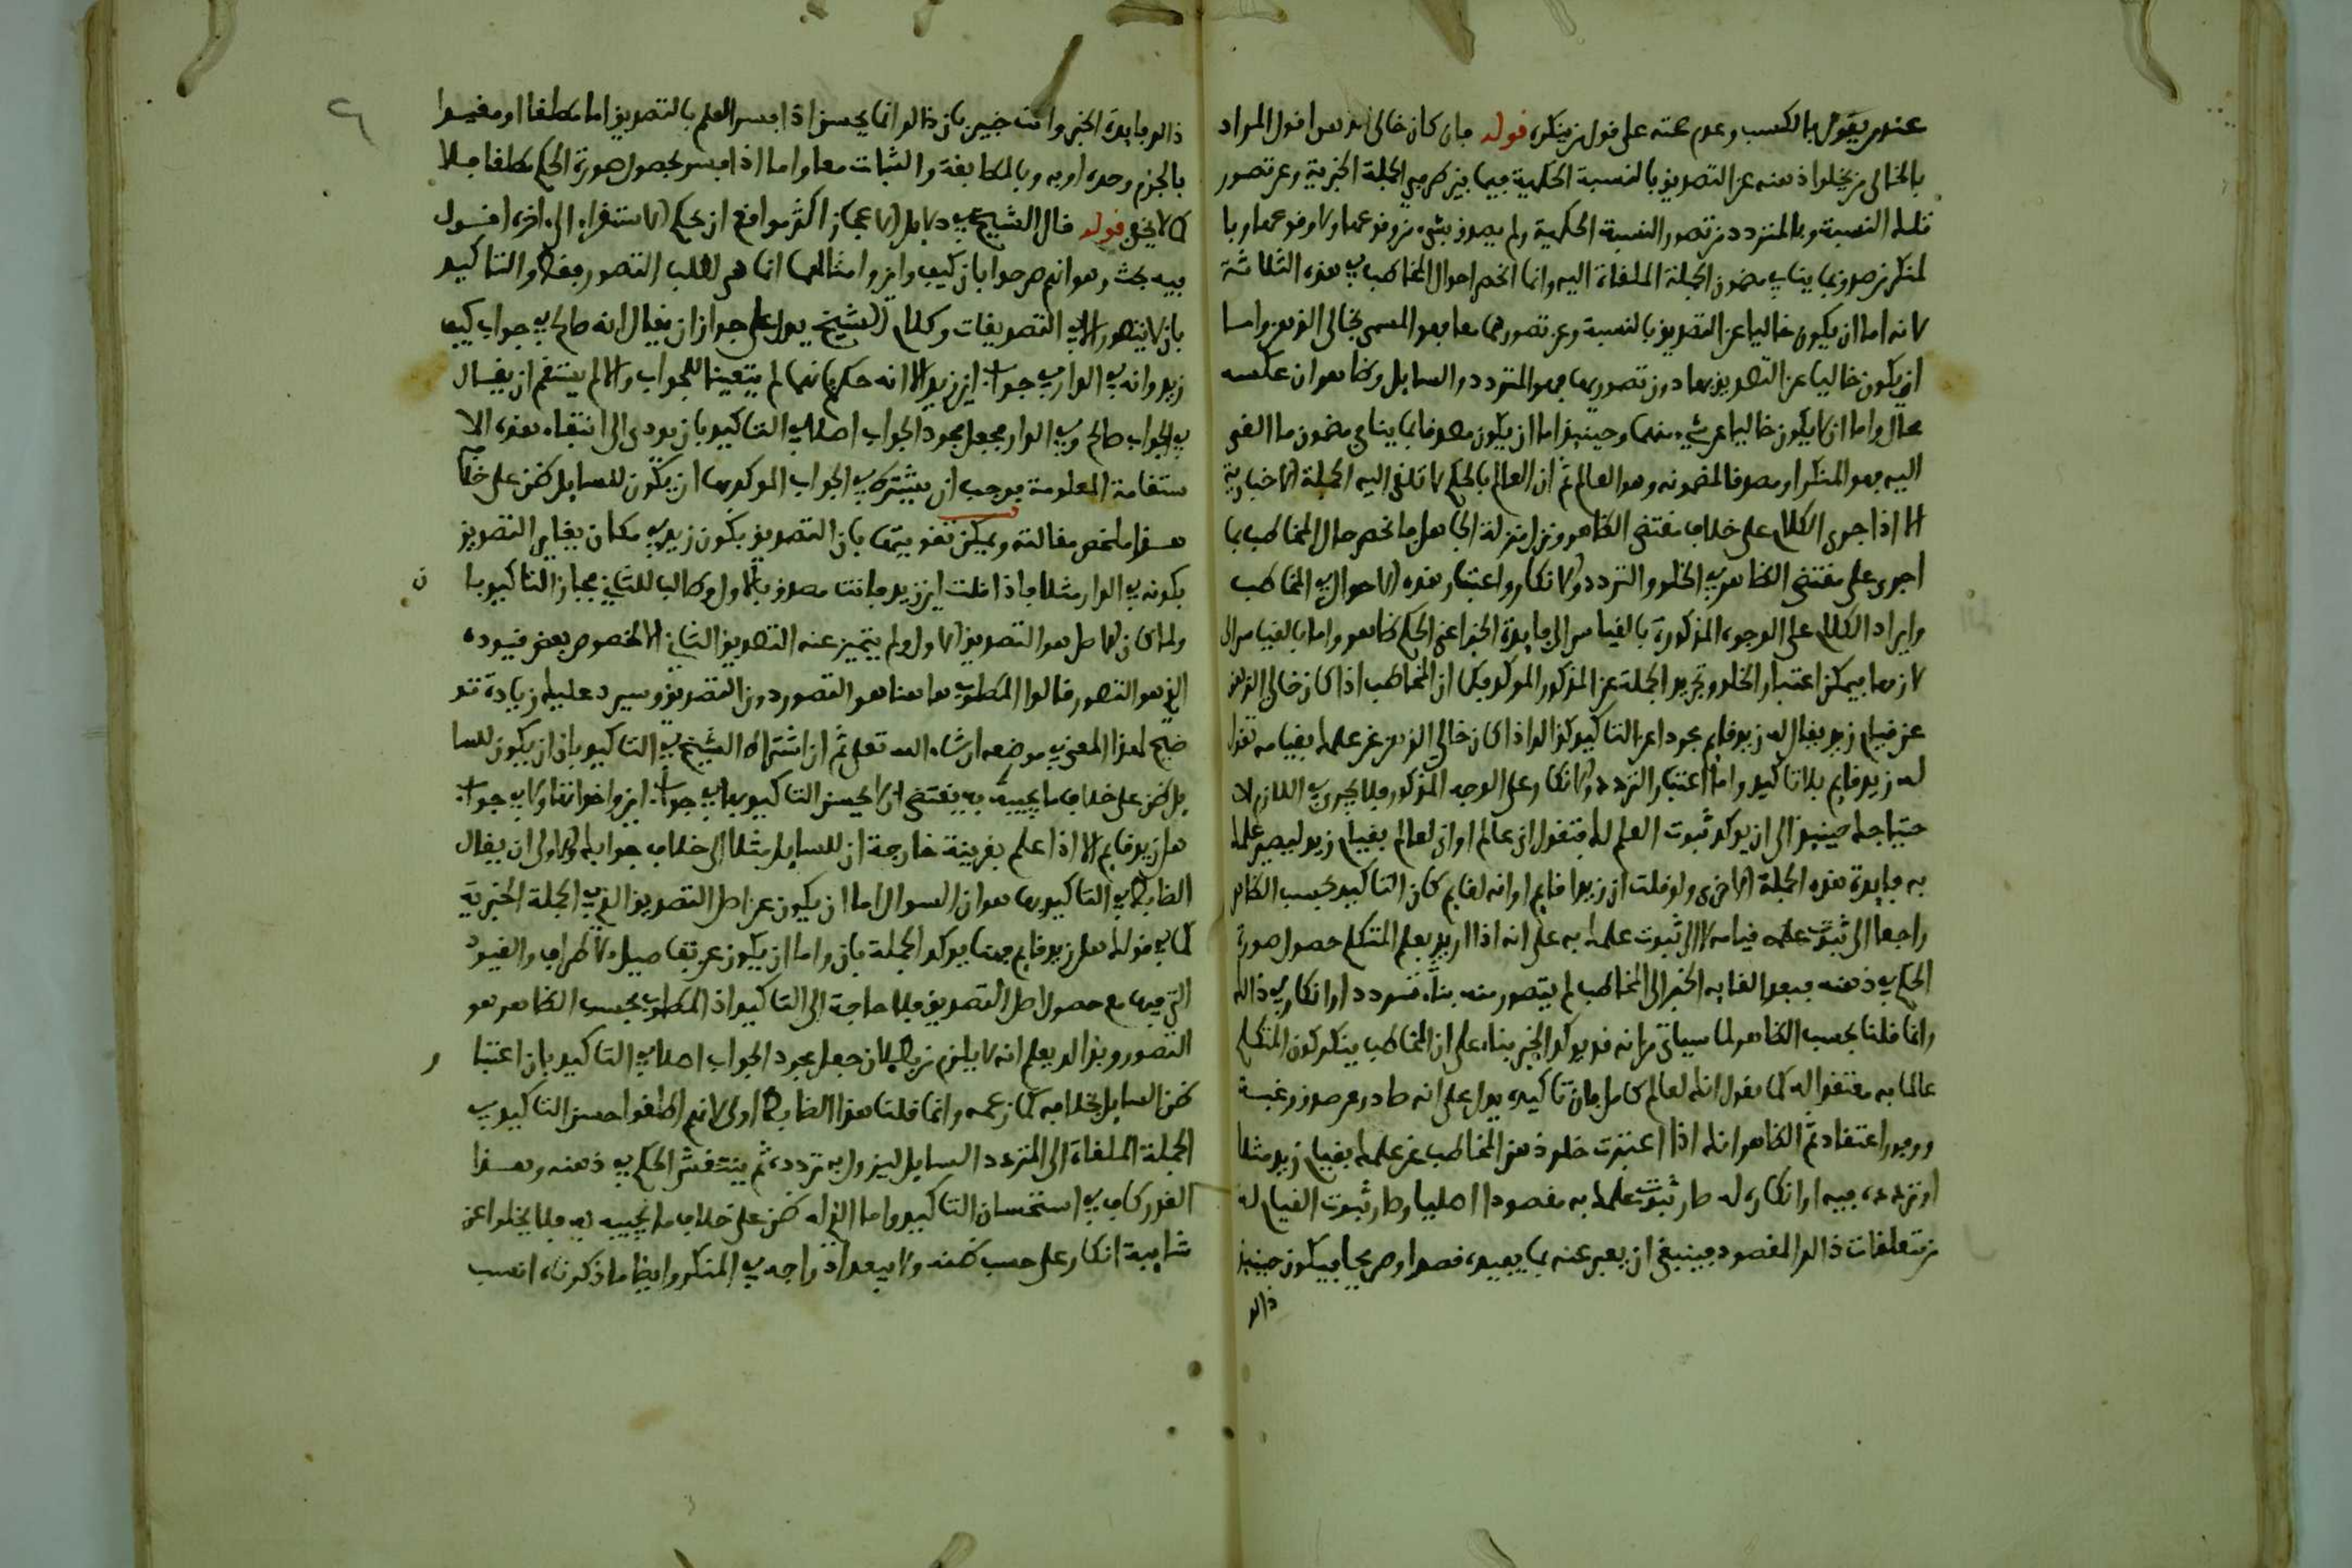 عند من يقول بالكسب وعدم صحته على قول من ينكره قوله فان كان خالي الذهن اقول المراد
بالخالي من يخلوا ذهنه عن التصديق بالنسبة الحكمية فيما بين طرفي الجملة الخبرية وعن تصور
تلك النسبة وبالمتردد من تصور النسبة الحكمية ولم يصدق بشيء من وقوعها ولا وقوعها وبا
لمنكر من صدق بما ينافي مضمون الجملة الملقاة اليه وانما انحصر احوال المخاطب في هذه الثلاثة
لانه اما ان يكون خاليا عن التصديق بالنسبة وعن تصورها معا فهو المسمى بخالي الذهن واما
ان يكون خاليا عن التصديق بها دون تصورها فهو المتردد والسايل وظاهر ان عكسه
محال واما ان لا يكون خاليا عن شيء منهما وحينيذ اما ان يكون مصدقا بما ينافي مضمون ما القي
اليه فهو المنكر او مصدقا لمضمونه وهو العالم ثم ان العالم بالحكم لا تلقى اليه الجملة الاخبارية
الا اذا جرى الكلام على خلاف مقتضى الظاهر ونزل منزلة الجاهل فانحصر حال المخاطب بما
اجرى على مقتضى الظاهر في الخلو والتردد والانكار واعتبار هذه الاحوال في المخاطب
وايراد الكلام على الوجوه المذكورة بالقياس الى فايدة الخبر اعني الحكم ظاهر واما بالقياس الى
لازمها فيمكن اعتبار الخلو وتجريد الجملة عن المذكور الموكد فكما ان المخاطب اذا كان خالي الذهن
عن قيام زيد يقال له زيد قايم مجردا عن التاكيد كذالك اذا كان خالي الذهن عن علمك بقيامه تقول
له زيد قايم بلا تاكيد واما اعتبار التردد والانكار على الوجه المذكور فلا يجري في اللازم لان
حتياجك حينيذ الى ان يوكد ثبوت العلم لك فتقول اني عالم او اني لعالم بقيام زيد ليصير علمك
به فايدة هذه الجملة الاخرى ولو قلت ان زيدا قايم او انه لقايم كان التاكيد بحسب الظاهر
راجعا الى ثبوت قيامه لا الى ثبوت علمك به على انه اذا اريد بعلم المتكلم حصول صورة
الحكم في ذهنه فبعد القايه الخبر الى المخاطب لم يتصور منه بتاء تردد او انكار في ذالك
وانما قلنا بحسب الظاهر لما سياتي من انه قد يوكد الخبر بناء على ان المخاطب ينكر كون المتكلم
عالما به معتقدا له كما تقول انك لعالم كامل فان تاكيده يدل على انه صادر عن صدق رغبة
ووفور اعتقاد ثم الظاهر انك اذا اعتبرت خلو ذهن المخاطب عن علمك بقيام زيد مثلا
او تردده فيه او انكاره له صار ثبوت علمك به مقصودا اصليا وصار ثبوت القيام له
من متعلقات ذالك المقصود فينبغي ان يعبر عنه بما يفيده قصدا وصريحا فيكون حينيذ
ذالك
ذالك فايدة الخبر وانت خبير بان ذالك انما يحسن اذا فسر العلم بالتصديق اما مطلقا او مقيدا
بالجزم وحده او به وبالمطابقة والثبات معا واما اذا فسر بحصول صورة الحكم مطلقا فلا
كما لا يخفى قوله قال الشيخ في دلايل الاعجاز اكثر مواقع ان بحكم الاستقراء الى اخره اقول
فيه بحث وهو انهم صرحوا بان كيف واين وامثالهما انما هي لطلب التصور فقط والتاكيد
بان لا يتصور الا في التصديقات وكلام الشيخ يدل على جواز ان يقال انه صالح في جواب كيف
زيد وانه في الدار في جواب اين زيد الا انه حكم بانهما لم يتعينا للجواب والا لم يستقم ان يقال
في الجواب صالح وفي الدار فجعل مجرد الجواب اصلا في التاكيد بان يودى الى انتفاء هذه الا
ستقامة المعلومة فوجب ان يشترط في الجواب الموكد بها ان يكون للسايل ظن على خلاف
هذا ملخص مقالته ويمكن تقويتها بان التصديق بكون زيد في مكان يغاير التصديق
بكونه في الدار مثلا فاذا قلت اين زيد فانت مصدق بالاول وطالب للثاني فجاز التاكيد با ن
ولما كان الحاصل هو التصديق الاول ولم يتميز عنه التصديق الثاني الا بخصوص بعض قيوده
الذي هو التصور قالوا المطلوب هاهنا هو التصور دون التصديق وسيرد عليك زيادة تو
ضيح لهذا المعنى في موضعه ان شاء الله تعلى ثم ان اشتراط الشيخ في التاكيد بان ان يكون للسا
يل ظن على خلاف ما يجيبه به يقتضي ان لا يحسن التاكيد بها في جواب اين واخواتها ولا في جواب
هل زيد قايم الا اذا علم بقرينة خارجة ان للسايل مثلا الى خلاف جوابك والاولى ان يقال
الضابط في التاكيد بها هو ان السوال اما ان يكون عن اصل التصديق الذي في الجملة الخبرية
كما في قولك هل زيد قايم فهنا يوكد الجملة بان واما ان يكون عن تفاصيل الاطراف والقيود
التي فيها مع حصول اصل التصديق فلا حاجة الى التاكيد اذ المطلوب بحسب الظاهر هو
التصور وبذالك يعلم انه لا يلزم من بطلان جعل مجرد الجواب اصلا في التاكيد بان اعتبا ر
ظن السايل بخلافه كما زعمه وانما قلنا هذا الضابط اولى لانهم اطلقوا حسن التاكيد في
الجملة الملقاة الى المتردد السايل ليزول به تردده ثم ينتقش الحكم في ذهنه وهذا
القدر كاف في استحسان التاكيد واما الذي له ظن على خلاف ما يجيبه به فلا يخلوا عن
شايبة انكار على حسب ظنه ولا يبعد ادراجه في المنكر وايضا ما ذكرناه انسب